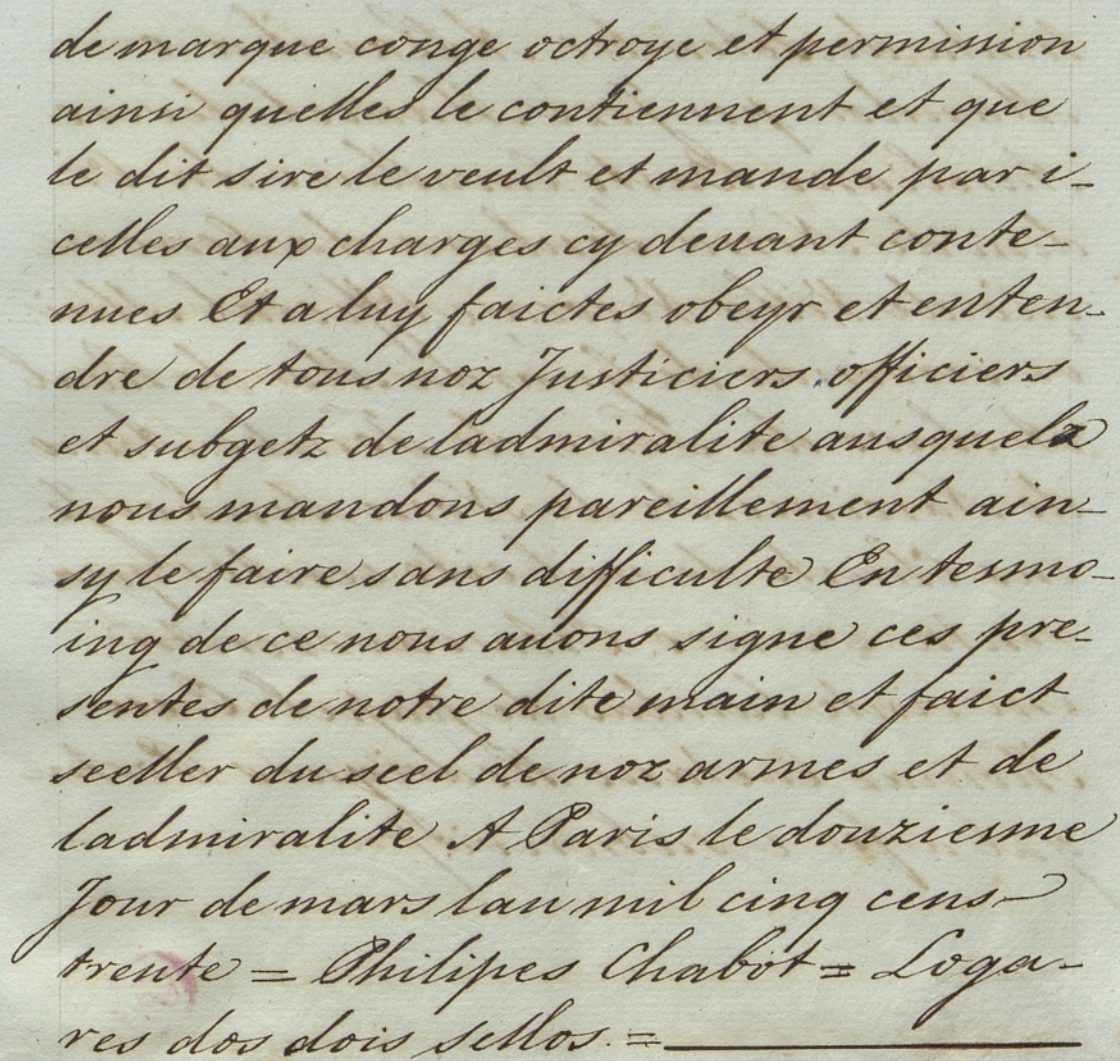 de marque conge octroye et permission
ainsi quelles le contiennent et que
le dit sire le veult et mande par i-
celles aux charges cy deuant conte-
nues Et a luy faictes obeyr et enten-
dre de tous noz Justiciers officiers
et subgetz de ladmiralite ausquelz
nous mandons pareillement ain-
sy le faire sans difficulte En tesmo-
ing de ce nous auons signe ces pre-
sentes de notre dite main et faict
seeller du seel de noz armes et de
ladmiralite A Paris le douziesme
Jour de mars lan mil cinq cens
trente = Philipes Chabot = Loga-
res dos dois sellos. =